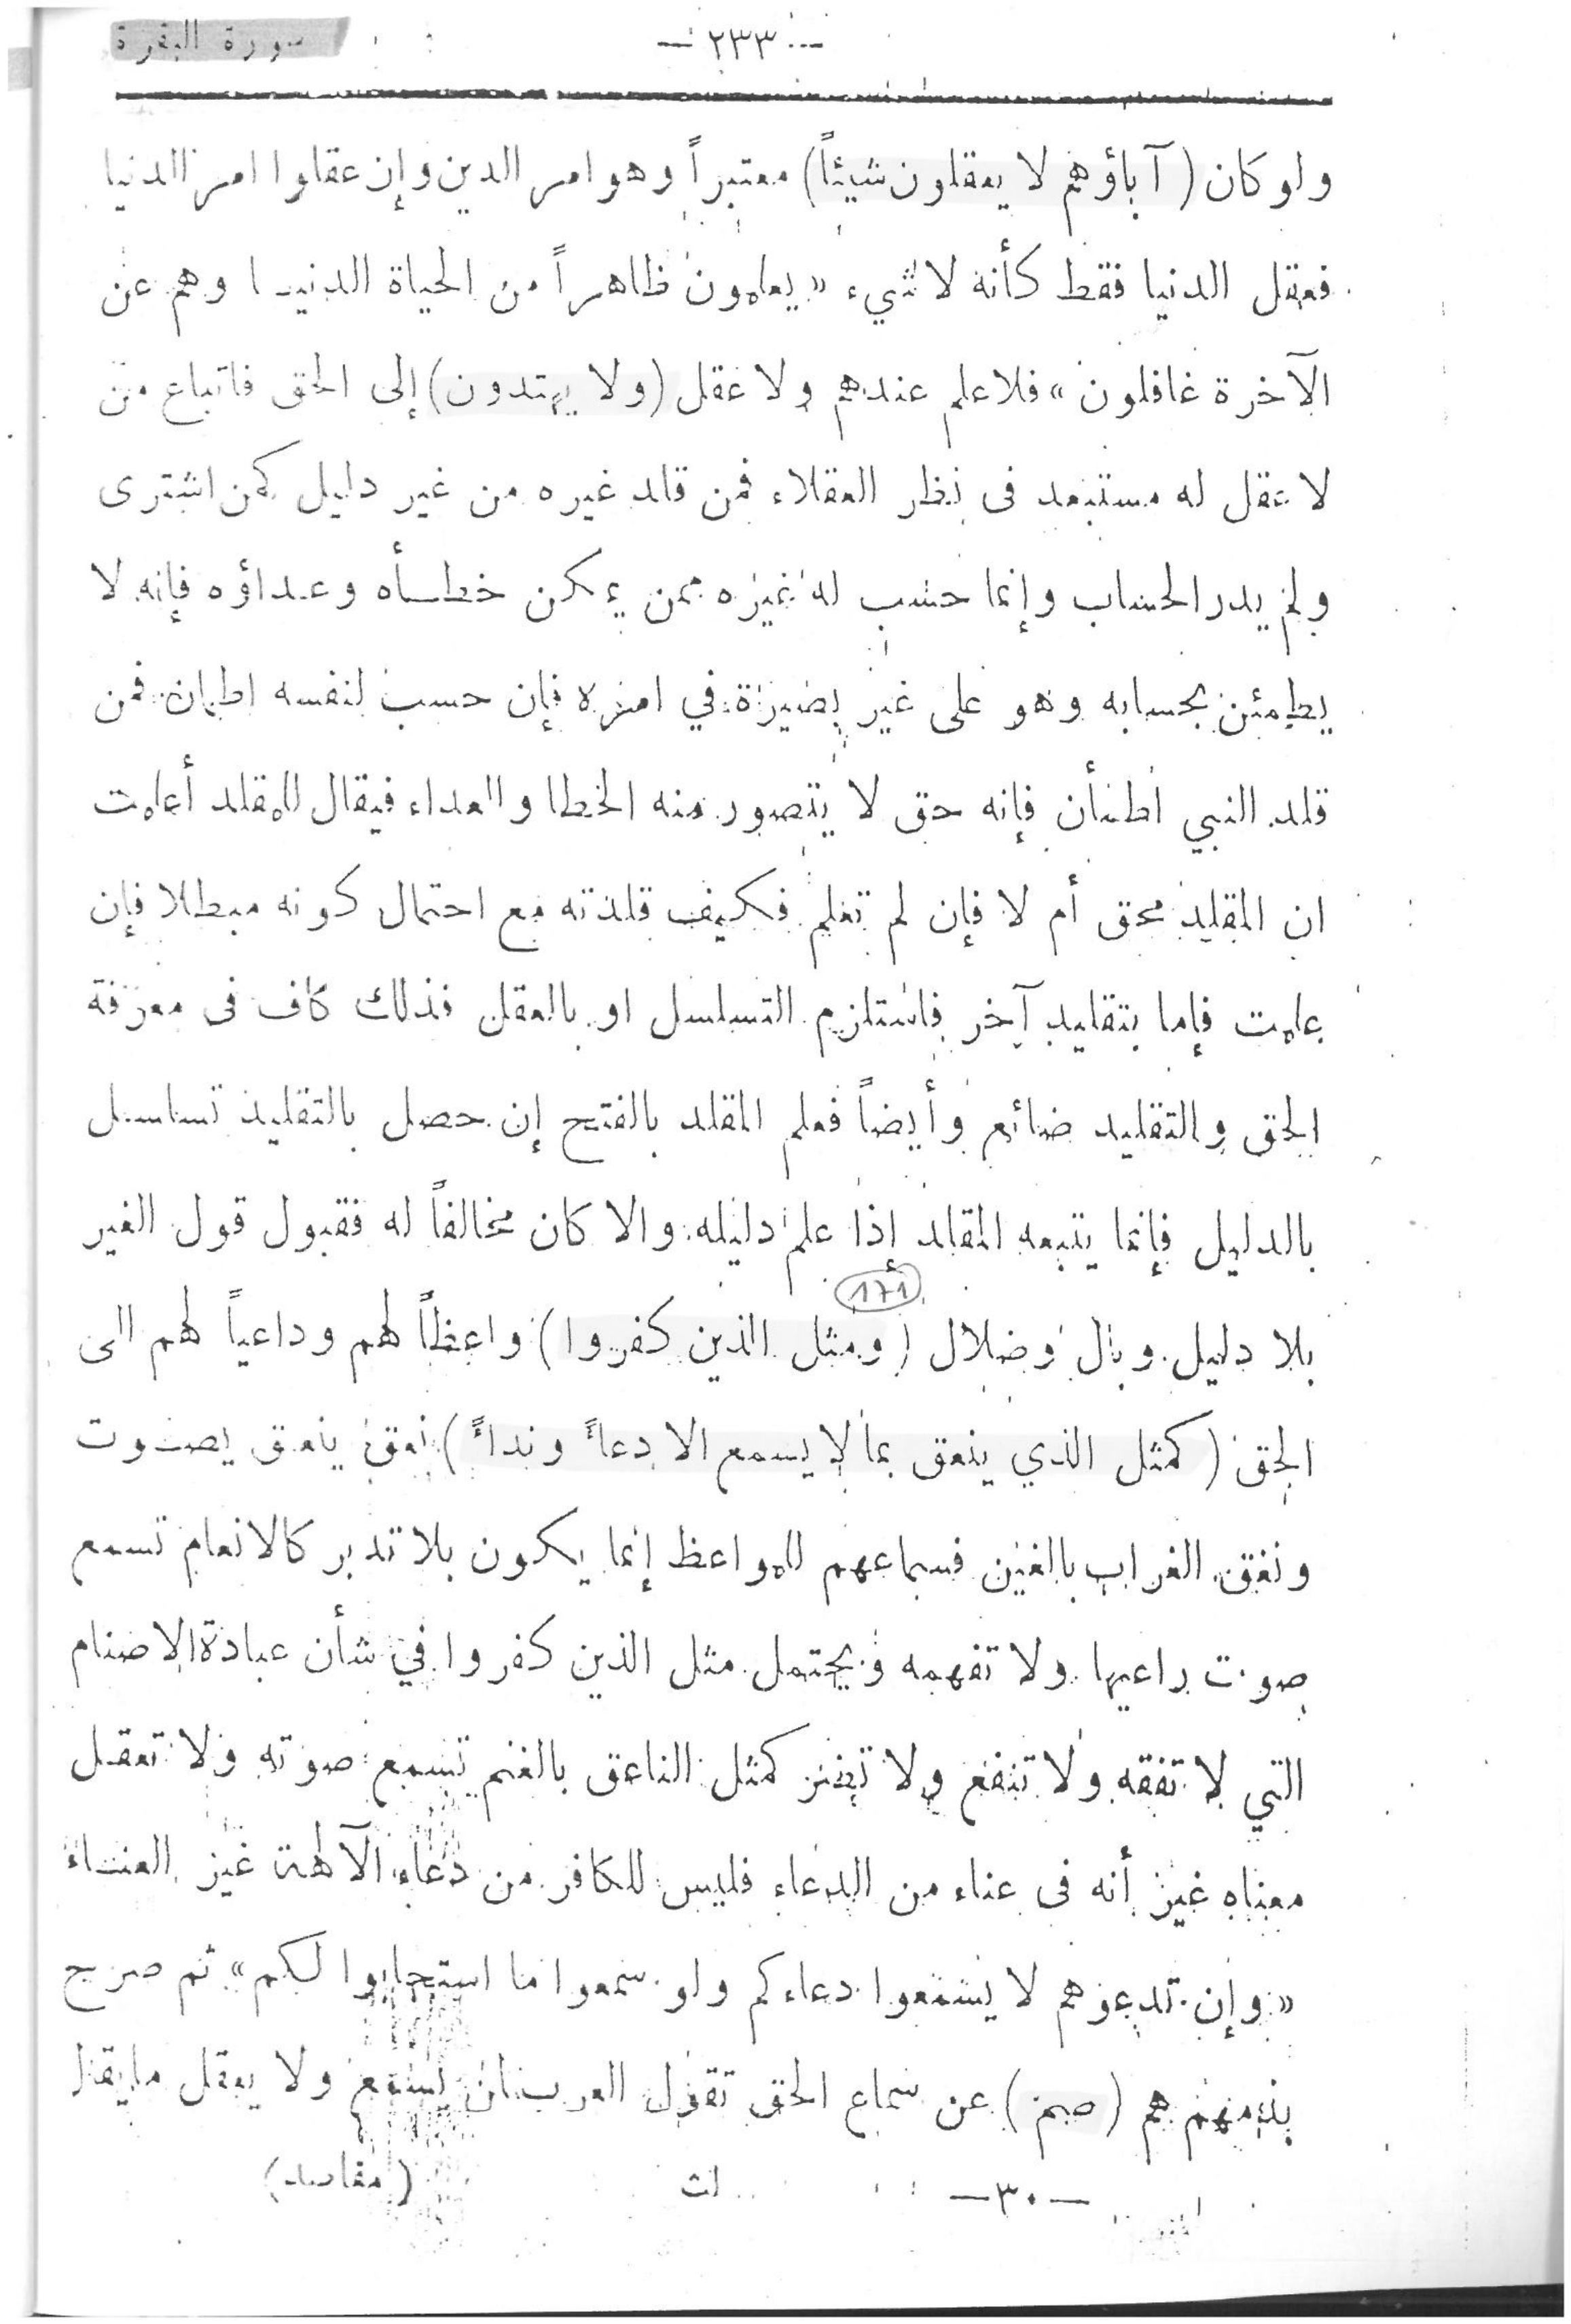 سورة البقرة
— ٢٣٣ —
ولو كان (آباؤهم لا يعقلون شيئاً) معتبراً وهو امر الدين وإن عقلوا امر الدنيا
فعقل الدنيا فقط كأنه لا شيء «يعلمون ظاهراً من الحياة الدنيا وهم عن
الآخرة غافلون» فلا علم عندهم ولا عقل (ولا يهتدون) إلى الحق فاتباع من
لا عقل له مستبعد فى نظر العقلاء فمن قلد غيره من غير دليل كمن اشترى
ولم يدر الحساب وإنما حسب له غيره ممن يمكن خطأه وعداؤه فإنه لا
يطمئن بحسابه وهو على غير بصيرة في امره فإن حسب لنفسه اطمأن فمن
قلد النبي اطمأن فإنه حق لا يتصور منه الخطا والعداء فيقال للمقلد أعلمت
ان المقلد محق أم لا فإن لم تعلم فكيف قلدته مع احتمال كونه مبطلا فإن
علمت فإما بتقليد آخر فاستلزم التسلسل او بالعقل فذلك كاف فى معرفة
الحق والتقليد ضائع وأيضاً فعلم المقلد بالفتح إن حصل بالتقليد تسلسل
بالدليل فإنما يتبعه المقلد إذا علم دليله والا كان مخالفاً له فقبول قول الغير
بلا دليل وبال وضلال (ومثل الذين كفروا) واعظاً لهم وداعياً لهم الى
171
الحق (كمثل الذي ينعق بما لا يسمع الا دعاءً ونداءً) نعق ينعق يصوت
ونغق الغراب بالغين فسماعهم للمواعظ إنما يكون بلا تدبر كالانعام تسمع
صوت راعيها ولا تفهمه ويحتمل مثل الذين كفروا في شأن عبادة الاصنام
التي لا تفقه ولا تنفع ولا تضر كمثل الناعق بالغنم تسمع صوته ولا تعقل
معناه غير أنه فى عناء من الدعاء فليس للكافر من دعاء الآلهة غير العناء
«وإن تدعوهم لا يسمعوا دعاءكم ولو سمعوا ما استجابوا لكم» ثم صرح
بذمهم هم (صم) عن سماع الحق تقول العرب لمن يسمع ولا يعقل ما يقال
— ٣٠ — لث (مقاصد)